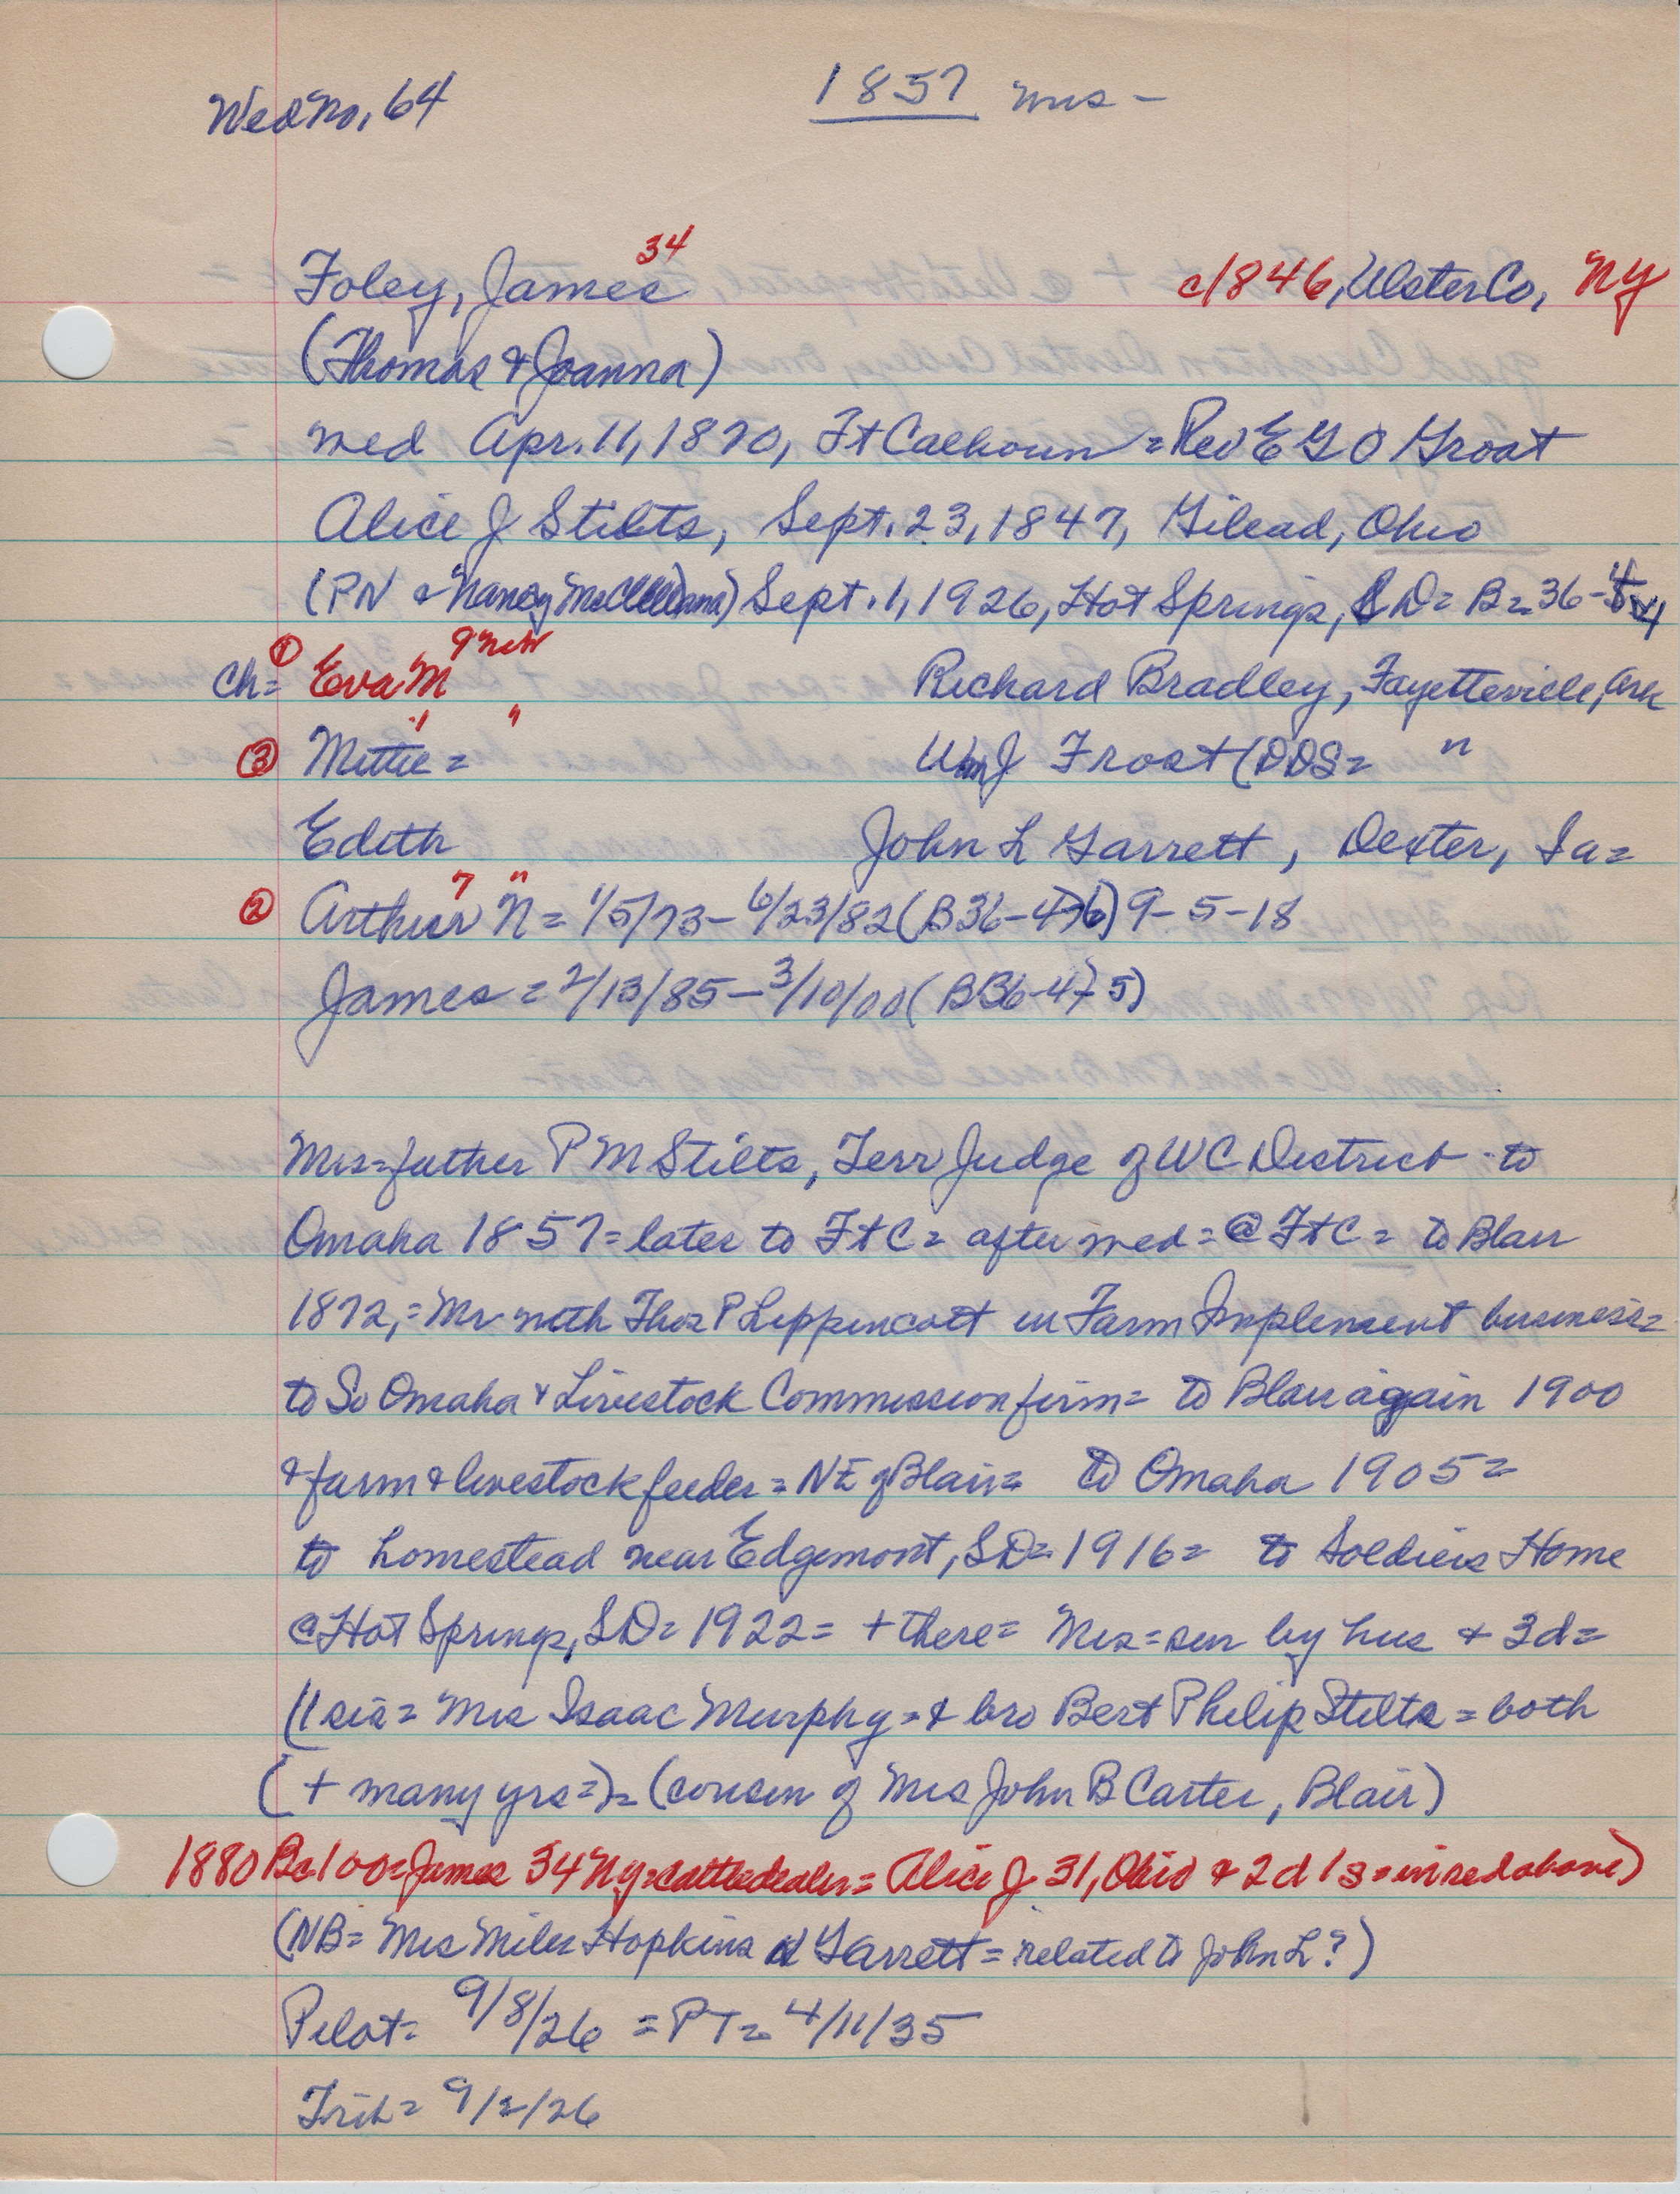 Wed No, 64
1857 mrs -
34
Foley, James c/846, Ulster Co, NY
(Thomas & Joanna)
med Apr. 11, 1870, Ft Calhoun = Rev E G O Groat
Alice J Stilts, Sept. 23, 1847, Gilead, Ohio
(PN & Nancy ) Sept. 1, 1926, Hot Springs, SD = B = 36-4
① 9 Neb
Ch = Eva M Richard Bradley, Fayetteville, Ark
1 "
③ Mittie = Wm J Frost (DDS = "
Edith John L Garrett, Dexter, Ia =
7 "
② Arthur N = 1/5/73 - 6/23/82 (B36-4-6) 9-5-18
James = 2/13/85 - 3/10/00 (B36-4-5)
Mrs = father P M Stilts, Terr Judge of WC District - to
Omaha 1857 = later to Ft C = after med = @ Ft C = to Blair
1872, = Mr with Thos P Lippincott in Farm Implement business =
to So Omaha & Livestock Commission firm = to Blair again 1900
& farm & livestock feeder = NE of Blair = to Omaha 1905 =
to homestead near Edgemont, SD = 1916 = to Soldiers Home
@ Hot Springs, SD = 1922 = + there = Mrs = sur by hus & 3d =
(1 sis = Mrs Isaac Murphy = & bro Bert Philip Stilts = both
(+ many yrs =) = (cousin of Mrs John B Carter, Blair)
1880 B = 100 = James 34 NY = cattledealer = Alice J 31, Ohio & 2d 1s = in red above)
(NB = Mrs Miles Hopkins d Garrett = related to John L?)
Pilot = 9/8/26 = PT = 4/11/35
Trib = 9/2/26